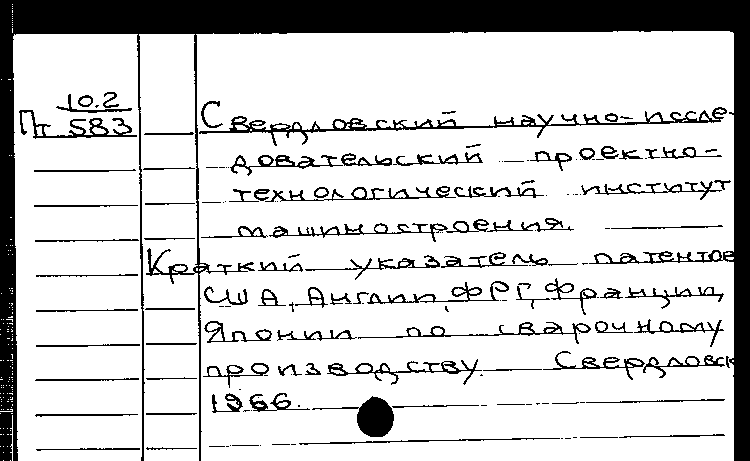 10.2
Пт 583
Свердловский научно-иссле-
довательский проектно-
технологический институт
машиностроения.
Краткий указатель патентов
США, Англии, ФРГ, Франции,
Японии по сварочному
производству. Свердловск
1966.